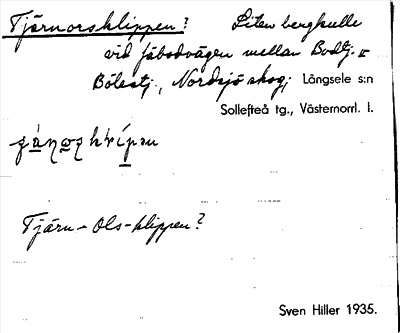 Tjärnorsklippen? Liten bergkulle
vid fäbodvägen mellan Bodtj. o.
Bölestj., Nordsjö skog, Långsele s:n
Sollefteå tg., Västernorrl. l.
Tjärn-Ols-klippen?
Sven Hiller 1935.